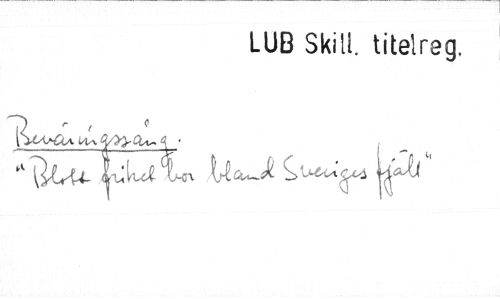 LUB Skill. titelreg.
Beväringssång.
"Blott frihet bor bland Sveriges fjäll"